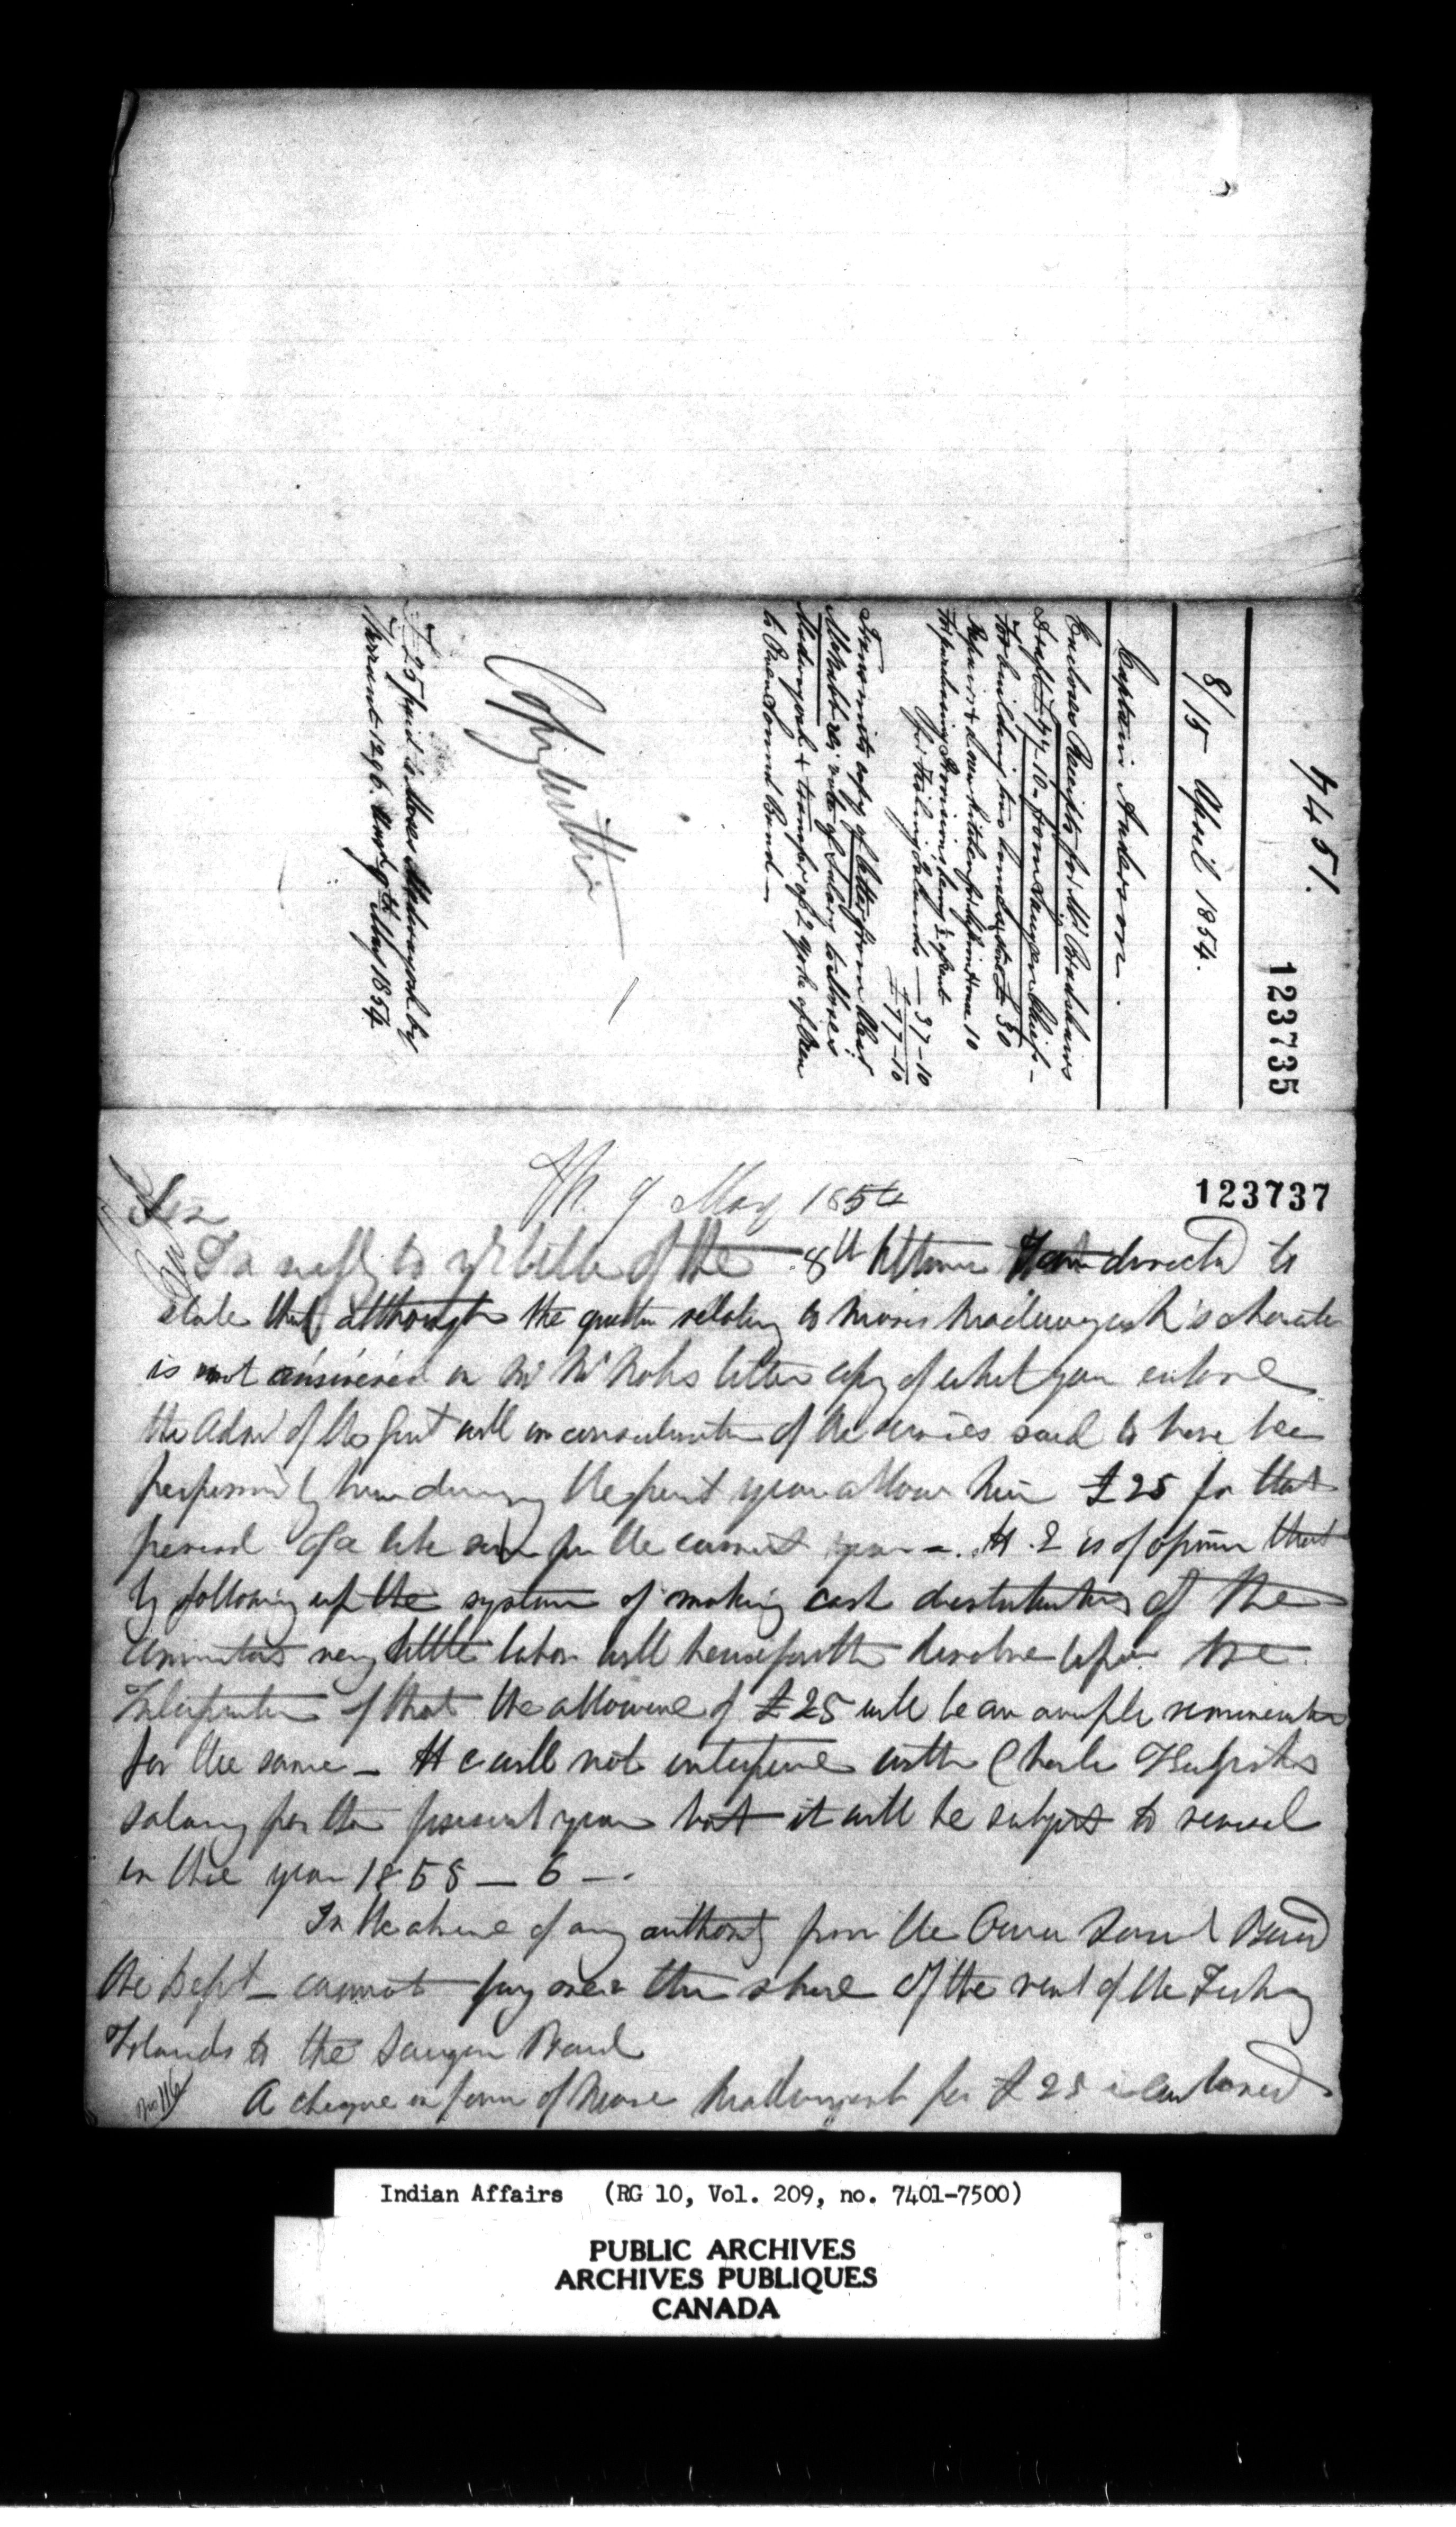 7451.
123735
8/15 April 1854.
Captain Anderson.
Encloses Receipts for Mr Bradshaws
Draft £77-10- from Saugeen Chiefs -
For building two
Repairs &
10
for Fishing Islands — 37-10
£77-10
Transmits copy of letter from
McNabb rate of Salary to Moses
Madwayosh & transfer of 2 yoke of Oxen
to Owen Sound Band —
Copy within
£25 paid to Moses Madwayosh by
Warrant 1296. 9th May 1854
123737
9 May 1854
Sir
In reply to yr letter of the 8th Ultimo I am directed to
state that although the question relating to Moses Madwayosh's character
is not answered in Mr McNabs letter copy of which you enclose
the Admr of the Govt will in consideration of the services said to have been
performed by him during the past year allow him £25 for that
period & a like sum for the current year -. H. E is of opinion that
by following up the system of making cash distributions of the
annuities very little labor will henceforth devolve upon the
Interpreter & that the allowance of £25 will be an ample remuneration
for the same - He will not interfere with Charles
salary for the present year but it will be subject to
in the year 1855 — 6 —.
In the absence of any authority from the Owen Sound Band
the Dept - cannot pay over their share of the rent of the Fishing
Islands to the Saugeen Band
A cheque in favor of Moses Madwayosh for £25 is enclosed
No 116
Indian Affairs (RG 10, Vol. 209, no. 7401-7500)
PUBLIC ARCHIVES
ARCHIVES PUBLIQUES
CANADA